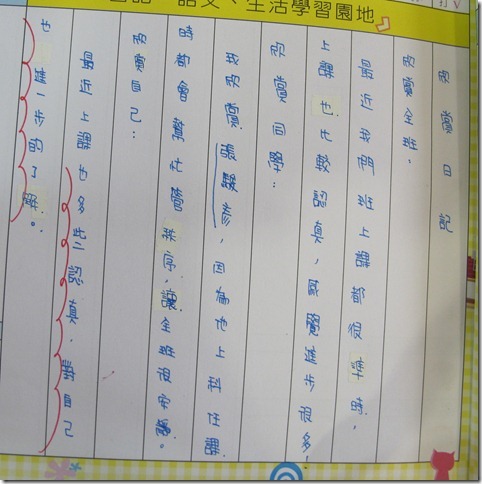 語文、生活學習園地
欣賞日記
欣賞全班,
最近我們班上課都很準時,
上課也比較認真,感覺進步很多!
欣賞同學:
我欣賞,因為他上科任課
時都會幫忙管秩序,讓全班很安靜。
欣賞自己:
最近上課也多些認真,對自己
也進一步的了解。